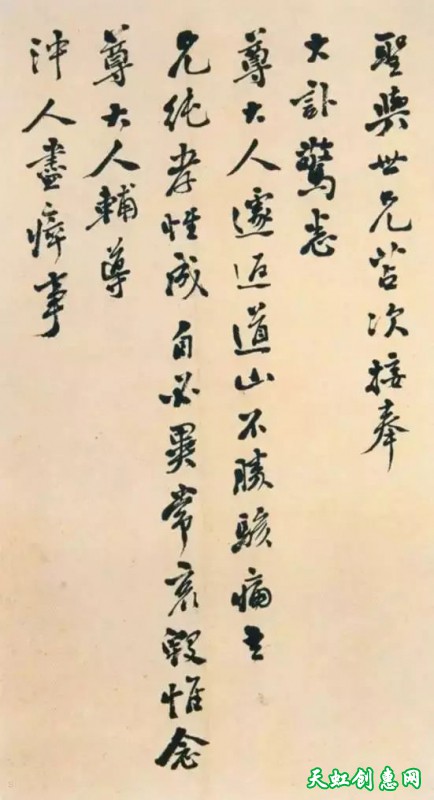 聖與世兄苫次接奉
大訃驚悉
尊大人遽返道山不勝駭痛吾
兄純孝性成自必異常哀毀惟念
尊大人輔導
沖人盡瘁事
天虹创惠网